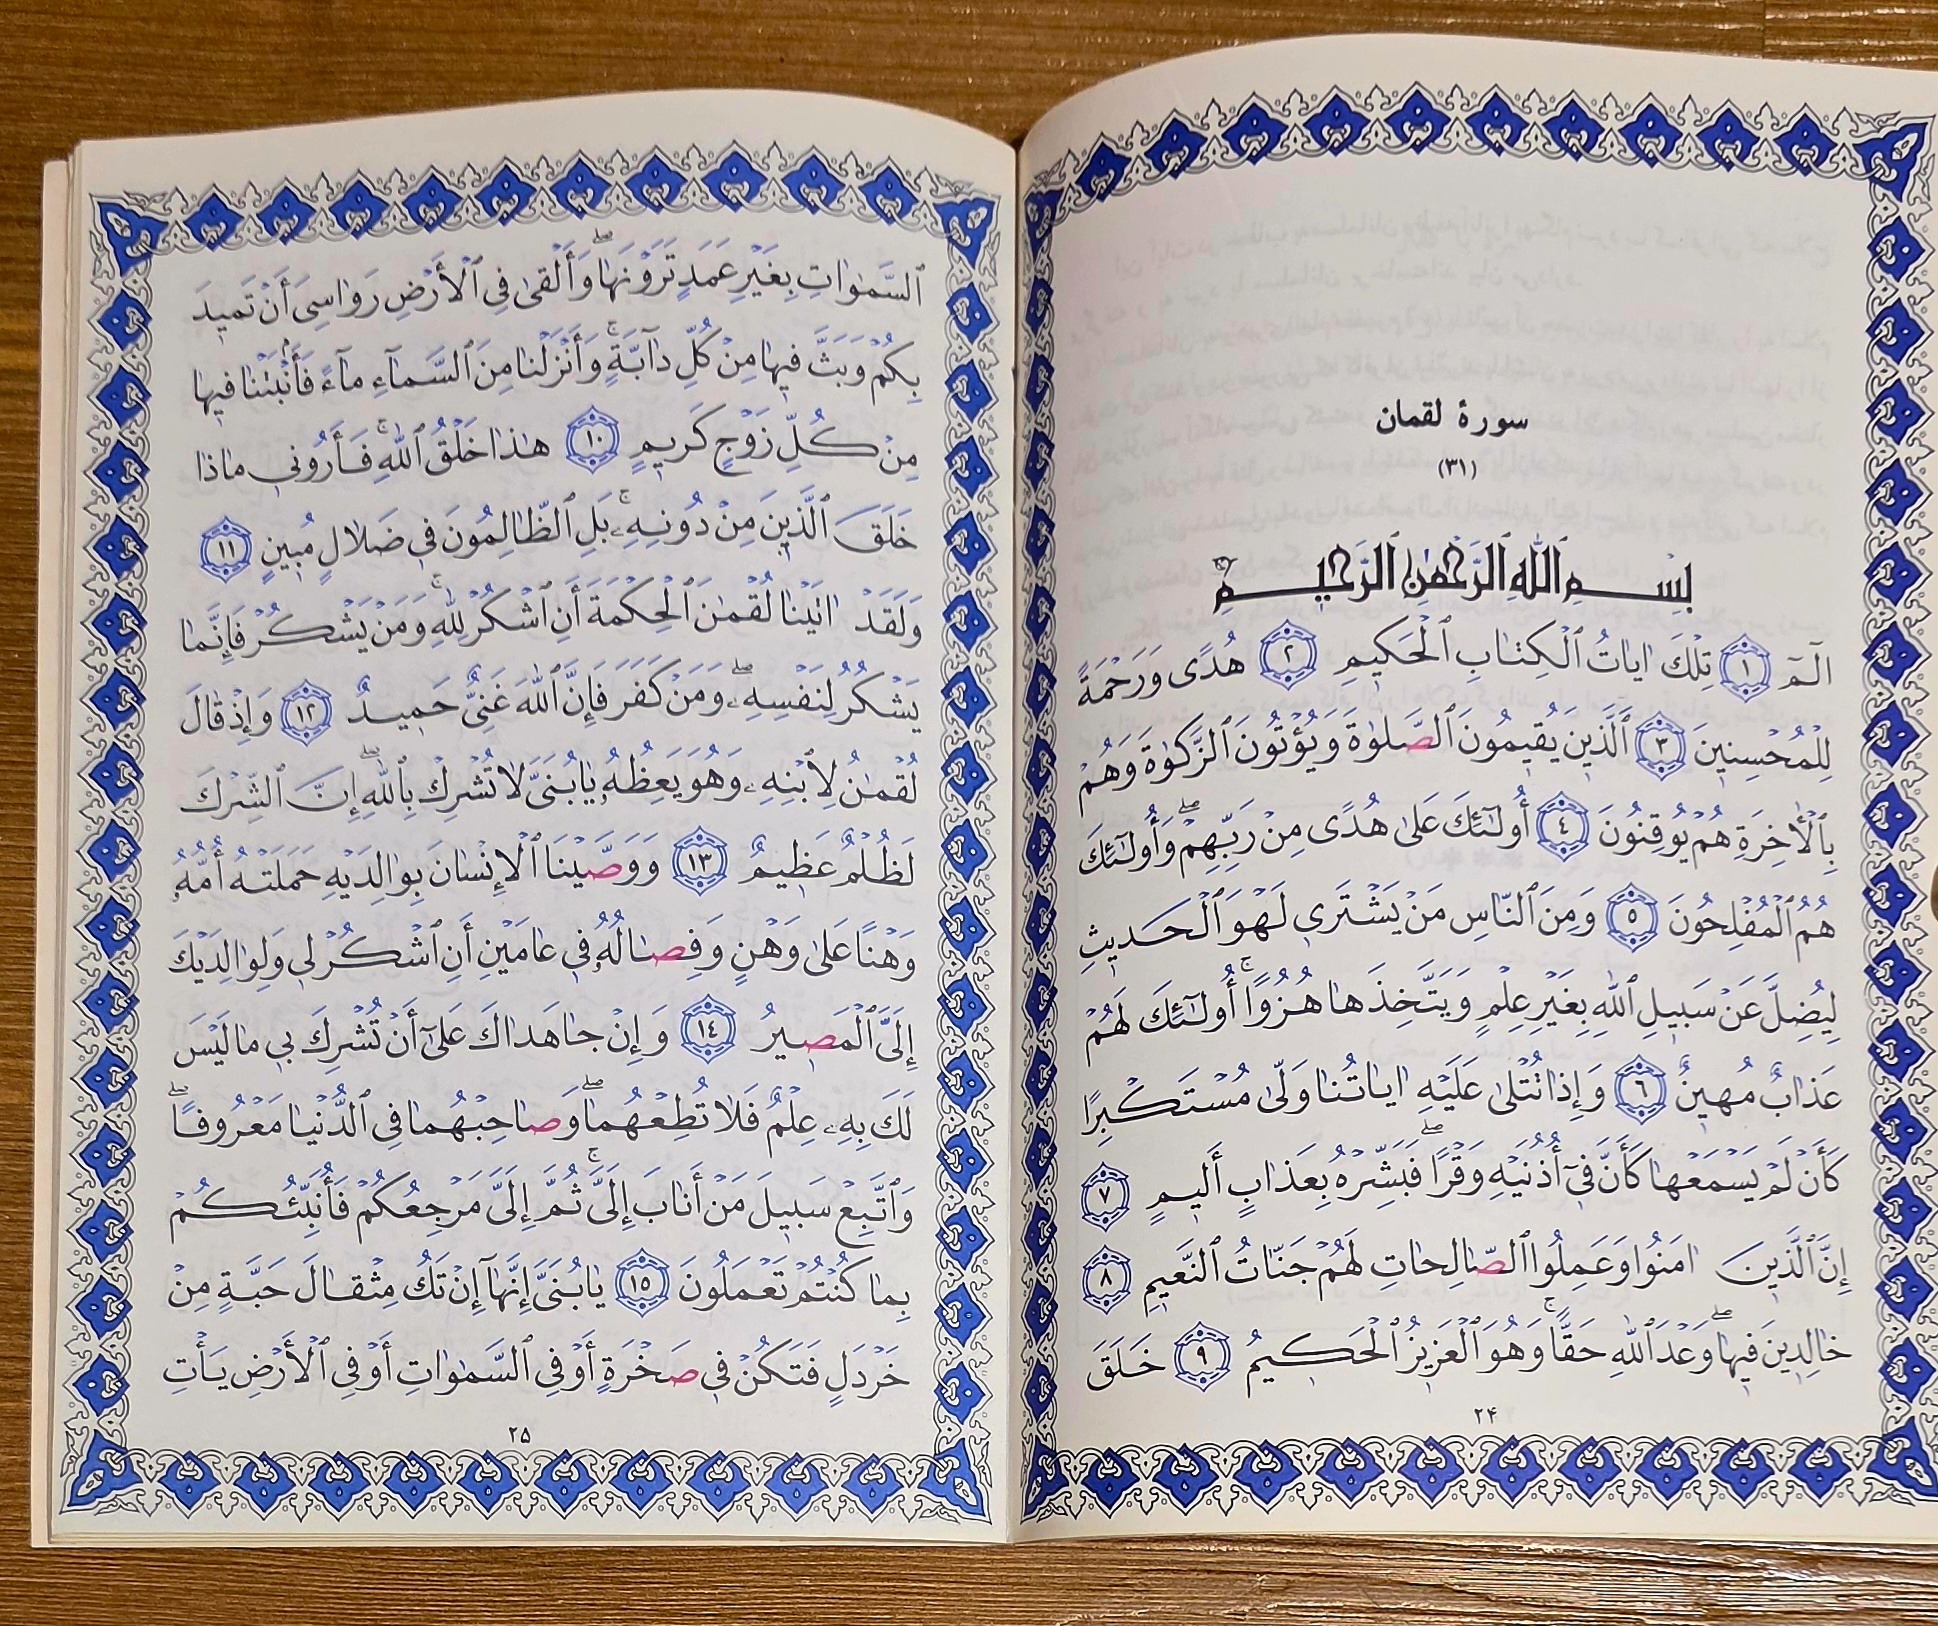 سورهٔ لقمان
(٣١)
بِسْمِ ٱللّٰهِ ٱلرَّحْمٰنِ ٱلرَّحيمِ
الٓمٓ ﴿١﴾ تِلْكَ اٰياتُ ٱلْكِتٰابِ ٱلْحَكيمِ ﴿٢﴾ هُدًى وَرَحْمَةً
لِلْمُحْسِنينَ ﴿٣﴾ ٱلَّذينَ يُقيمُونَ ٱلصَّلوٰةَ وَيُؤْتُونَ ٱلزَّكوٰةَ وَهُمْ
بِٱلْأٰخِرَةِ هُمْ يُوقِنُونَ ﴿٤﴾ أُولٰٓئِكَ عَلىٰ هُدًى مِنْ رَبِّهِمْ ۖ وَأُولٰٓئِكَ
هُمُ ٱلْمُفْلِحُونَ ﴿٥﴾ وَمِنَ ٱلنّٰاسِ مَنْ يَشْتَري لَهْوَ ٱلْحَديثِ
لِيُضِلَّ عَنْ سَبيلِ ٱللّٰهِ بِغَيْرِ عِلْمٍ وَيَتَّخِذَهٰا هُزُوًا ۚ أُولٰٓئِكَ لَهُمْ
عَذٰابٌ مُهينٌ ﴿٦﴾ وَإِذٰا تُتْلىٰ عَلَيْهِ اٰيٰاتُنٰا وَلّىٰ مُسْتَكْبِرًا
كَأَنْ لَمْ يَسْمَعْهٰا كَأَنَّ فيٓ أُذُنَيْهِ وَقْرًا ۖ فَبَشِّرْهُ بِعَذٰابٍ أَليمٍ ﴿٧﴾
إِنَّ ٱلَّذينَ اٰمَنُوا وَعَمِلُوا ٱلصّٰالِحٰاتِ لَهُمْ جَنّٰاتُ ٱلنَّعيمِ ﴿٨﴾
خٰالِدينَ فيهٰا ۖ وَعْدَ ٱللّٰهِ حَقًّا ۚ وَهُوَ ٱلْعَزيزُ ٱلْحَكيمُ ﴿٩﴾ خَلَقَ
٢۴
ٱلسَّمٰوٰاتِ بِغَيْرِ عَمَدٍ تَرَوْنَهٰا ۖ وَأَلْقىٰ فِي ٱلْأَرْضِ رَوٰاسِيَ أَنْ تَميدَ
بِكُمْ وَبَثَّ فيهٰا مِنْ كُلِّ دٰآبَّةٍ ۚ وَأَنْزَلْنٰا مِنَ ٱلسَّمٰآءِ مٰآءً فَأَنْۢبَتْنٰا فيهٰا
مِنْ كُلِّ زَوْجٍ كَريمٍ ﴿١٠﴾ هٰذٰا خَلْقُ ٱللّٰهِ ۚ فَأَرُوني مٰاذٰا
خَلَقَ ٱلَّذينَ مِنْ دُونِهِۦ ۚ بَلِ ٱلظّٰالِمُونَ في ضَلٰالٍ مُبينٍ ﴿١١﴾
وَلَقَدْ اٰتَيْنٰا لُقْمٰنَ ٱلْحِكْمَةَ أَنِ ٱشْكُرْ لِلّٰهِ ۚ وَمَنْ يَشْكُرْ فَإِنَّمٰا
يَشْكُرُ لِنَفْسِهِۦ ۖ وَمَنْ كَفَرَ فَإِنَّ ٱللّٰهَ غَنِيٌّ حَميدٌ ﴿١٢﴾ وَإِذْ قٰالَ
لُقْمٰنُ لِٱبْنِهِۦ وَهُوَ يَعِظُهُۥ يٰابُنَيَّ لٰا تُشْرِكْ بِٱللّٰهِ ۖ إِنَّ ٱلشِّرْكَ
لَظُلْمٌ عَظيمٌ ﴿١٣﴾ وَوَصَّيْنَا ٱلْإِنْسٰانَ بِوٰالِدَيْهِ حَمَلَتْهُ أُمُّهُۥ
وَهْنًا عَلىٰ وَهْنٍ وَفِصٰالُهُۥ في عٰامَيْنِ أَنِ ٱشْكُرْ لي وَلِوٰالِدَيْكَ
إِلَيَّ ٱلْمَصيرُ ﴿١٤﴾ وَإِنْ جٰاهَدٰاكَ عَلىٰٓ أَنْ تُشْرِكَ بي مٰا لَيْسَ
لَكَ بِهِۦ عِلْمٌ فَلٰا تُطِعْهُمٰا ۖ وَصٰاحِبْهُمٰا فِي ٱلدُّنْيٰا مَعْرُوفًا ۖ
وَٱتَّبِعْ سَبيلَ مَنْ أَنٰابَ إِلَيَّ ۚ ثُمَّ إِلَيَّ مَرْجِعُكُمْ فَأُنَبِّئُكُمْ
بِمٰا كُنْتُمْ تَعْمَلُونَ ﴿١٥﴾ يٰابُنَيَّ إِنَّهٰآ إِنْ تَكُ مِثْقٰالَ حَبَّةٍ مِنْ
خَرْدَلٍ فَتَكُنْ في صَخْرَةٍ أَوْ فِي ٱلسَّمٰوٰاتِ أَوْ فِي ٱلْأَرْضِ يَأْتِ
٢۵